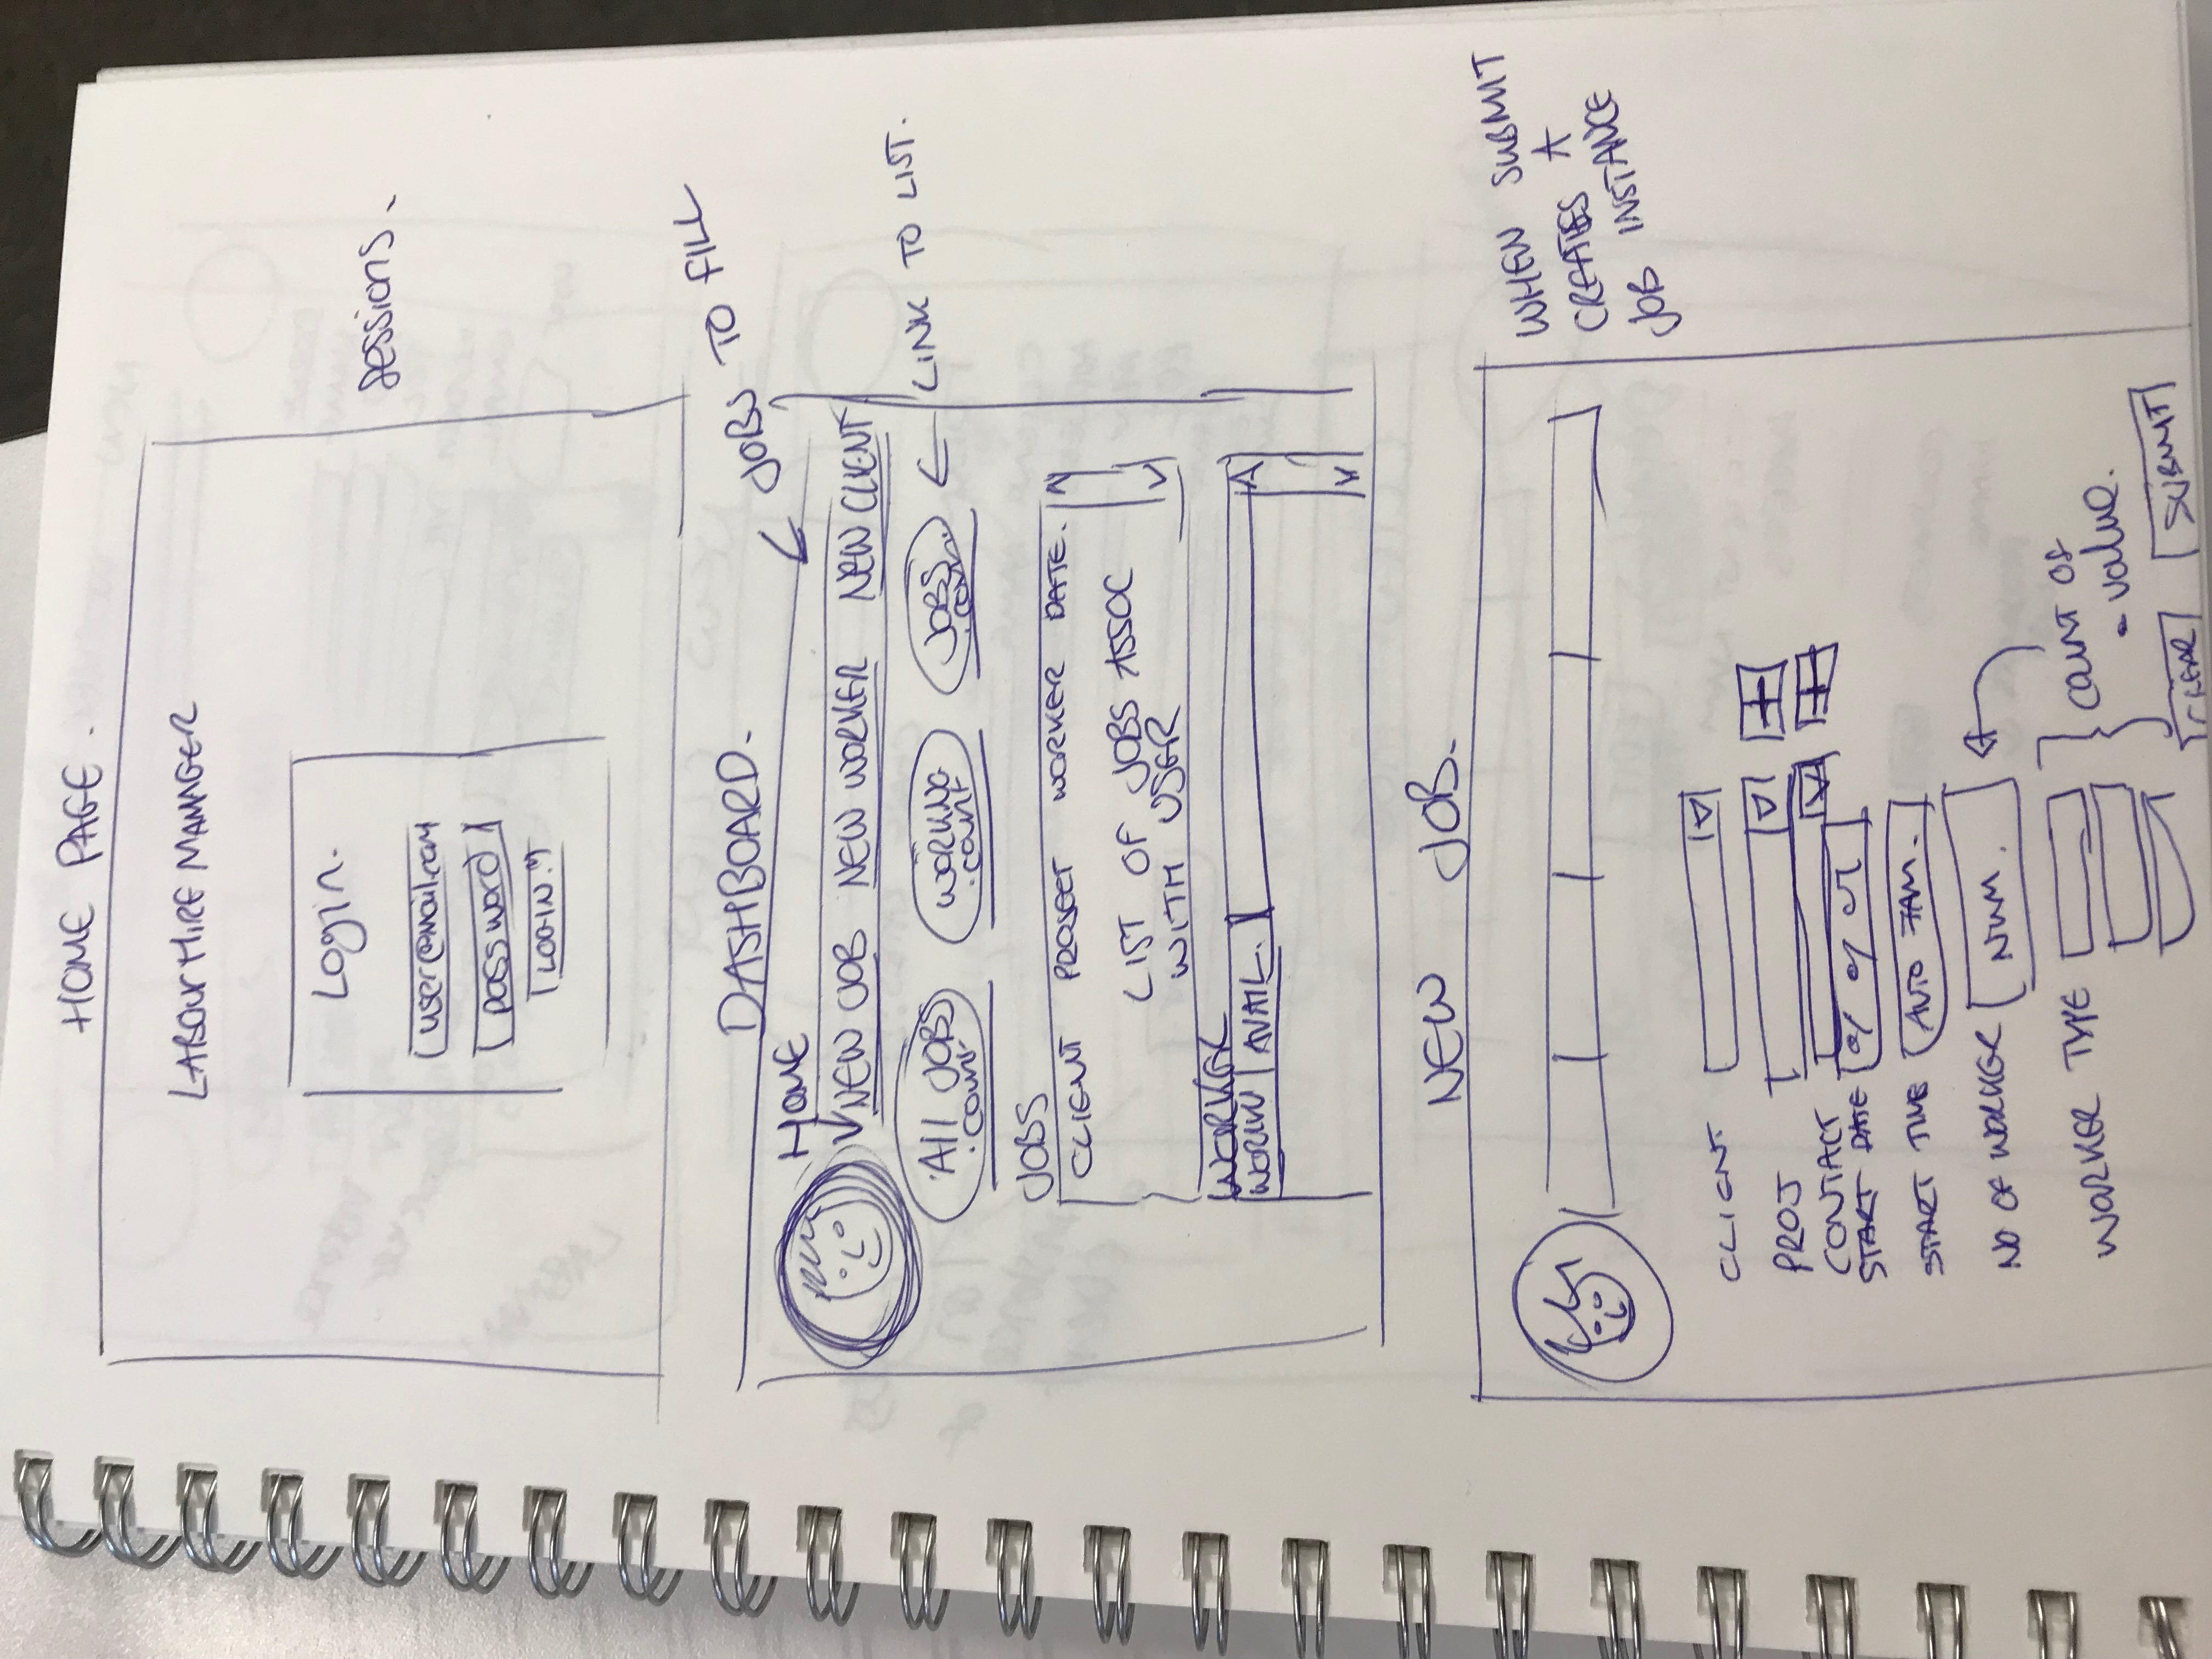 HOME PAGE.
LABOUR HIRE MANAGER
Login.
user@mail.com
password
LOGIN
sessions.
DASHBOARD.
JOBS TO FILL
HOME
NEW JOB NEW WORKER NEW CLIENT
All JOBS
.count
WORKING
.count
JOBS
.count
LINK TO LIST.
JOBS
CLIENT PROJECT WORKER DATE.
LIST OF JOBS ASSOC
WITH USER
WORKER
AVAIL.
NEW JOB.
WHEN SUBMIT
CREATES A
JOB INSTANCE
CLIENT
PROJ
+
CONTACT
+
START DATE
START TIME AUTO 7AM.
NO OF WORKER NUM.
WORKER TYPE
COUNT OF
value.
CLEAR SUBMIT